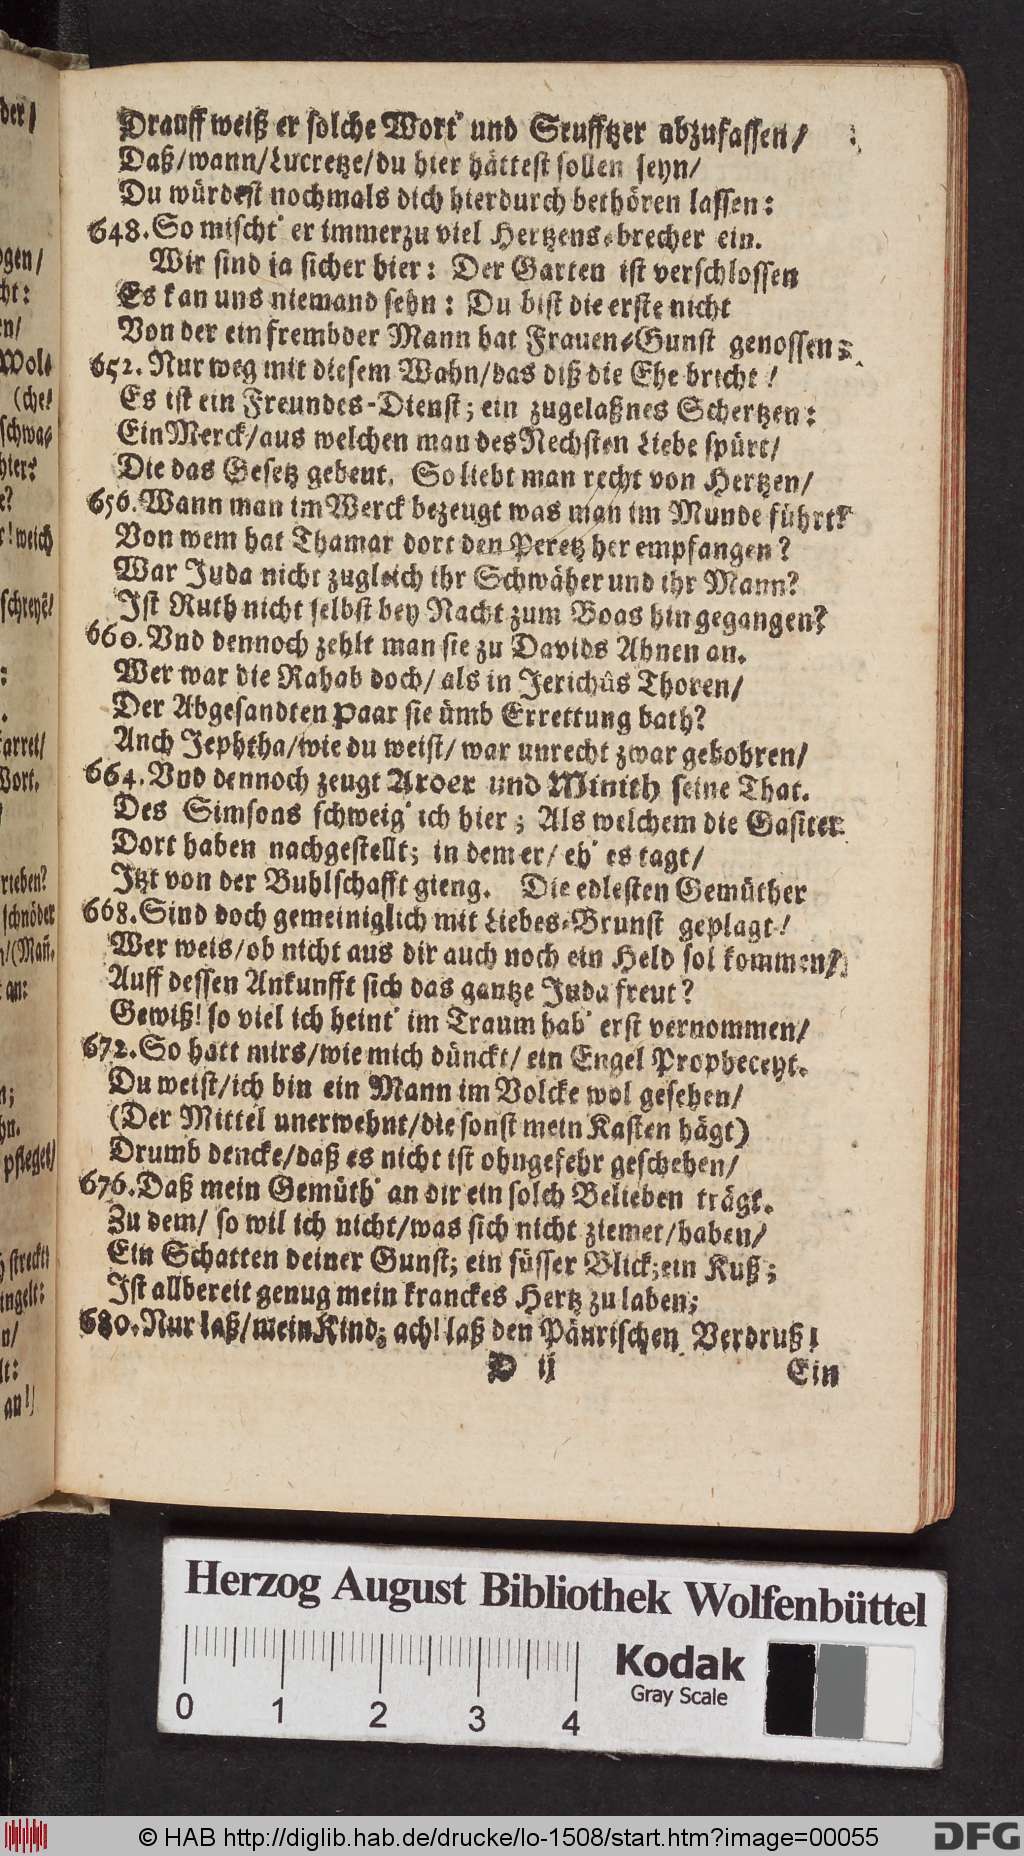 Drauff weiß er solche Wort' und Seufftzer abzufassen/
Daß/wann/Lucretze/du hier hättest sollen seyn/
Du würdest nochmals dich hierdurch bethören lassen:
648. So mischt' er immerzu viel Hertzens-brecher ein.
Wir sind ja sicher hier: Der Garten ist verschlossen
Es kan uns niemand sehn: Du bist die erste nicht
Von der ein frembder Mann hat Frauen-Gunst genossen:
652. Nur weg mit diesem Wahn/das diß die Ehe bricht!
Es ist ein Freundes-Dienst; ein zugelaßnes Schertzen:
Ein Merck/aus welchen man des Nechsten Liebe spürt/
Die das Gesetz gebeut. So liebt man recht von Hertzen/
656. Wann man im Werck bezeugt was man im Munde führt.
Von wem hat Thamar dort den Peretz her empfangen?
War Juda nicht zugleich ihr Schwäher und ihr Mann?
Ist Ruth nicht selbst bey Nacht zum Boas hin gegangen?
660. Vnd dennoch zehlt man sie zu Davids Ahnen an.
Wer war die Rahab doch/ als in Jerichûs Thoren/
Der Abgesandten Paar sie ümb Errettung bath?
Auch Jephtha/wie du weist/ war unrecht zwar gebohren/
664. Vnd dennoch zeugt Aroer und Minith seine That.
Des Simsons schweig' ich hier; Als welchem die Gasiter
Dort haben nachgestellt; in dem er/ eh' es tagt/
Itzt von der Buhlschafft gieng. Die edlesten Gemüther
668. Sind doch gemeiniglich mit Liebes-Brunst geplagt!
Wer weis/ob nicht aus dir auch noch ein Held sol kommen/
Auff dessen Ankunfft sich das gantze Juda freut?
Gewiß! so viel ich heint' im Traum hab' erst vernommen/
672. So hatt mirs/wie mich dünckt/ ein Engel Propheceyt.
Du weist/ich bin ein Mann im Volcke wol gesehen/
(Der Mittel unerwehnt/die sonst mein Kasten hägt)
Drumb dencke/daß es nicht ist ohngefehr geschehen/
676. Daß mein Gemüth' an dir ein solch Belieben trägt.
Zu dem/ so wil ich nicht/was sich nicht ziemet/haben/
Ein Schatten deiner Gunst; ein süsser Blick;ein Kuß;
Ist allbereit genug mein kranckes Hertz zu laben;
680. Nur laß/mein Kind; ach! laß den Päurischen Verdruß!
D ij
Ein
der/
ogen/
cht:
en/
Wol-
(che/
schwa-
hier:
e?
r! weich
schreyē/
:
.
Wort.
rieben?
schnöder
n/(Mañ.
an:
n;
hn.
pfleget/
streckt:
ingelt:
n/
lt:
an!/
Herzog August Bibliothek Wolfenbüttel
Kodak
Gray Scale
0 1 2 3 4
© HAB http://diglib.hab.de/drucke/lo-1508/start.htm?image=00055
DFG